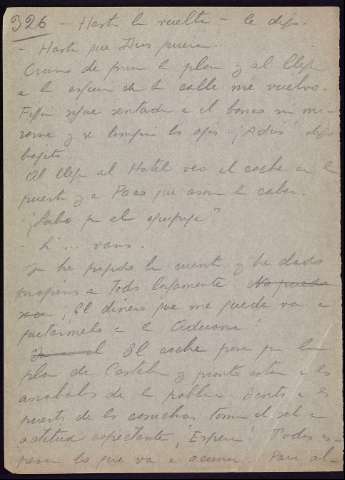 326 - Hasta la vuelta - le digo.
- Hasta que Dios quiera.
Cruzo de prisa la plaza y al llegar
a la esquina de la calle me vuelvo.
sigue sentada en el banco sin
y se limpia los ojos ¡Adios! digo
bajito
Al llegar al Hotel veo el coche en la
puerta y a Paco que asoma la cabeza.
¿Subo por el equipaje?
- Sí... vamos.
Ya he pagado la cuenta y he dado
propina a todos largamente. No puedo
¡El dinero que me queda va a
quitármelo a la Aduana!
El coche pasa por la
plaza de Castelar y pronto está en los
arrabales de la población. Gente a las
puertas de las casuchas, toma el sol en
actitud expectante. ¡Espera! Todos es-
peran lo que va a ocurrir. Para al-